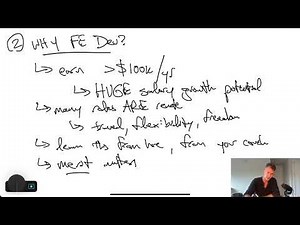 ② WHY FE Dev?
↳ earn > $100k/yr
↳ HUGE salary growth potential
↳ many roles ARE remote
↳ travel, flexibility, freedom
↳ learn this from home, from your couch
↳ most